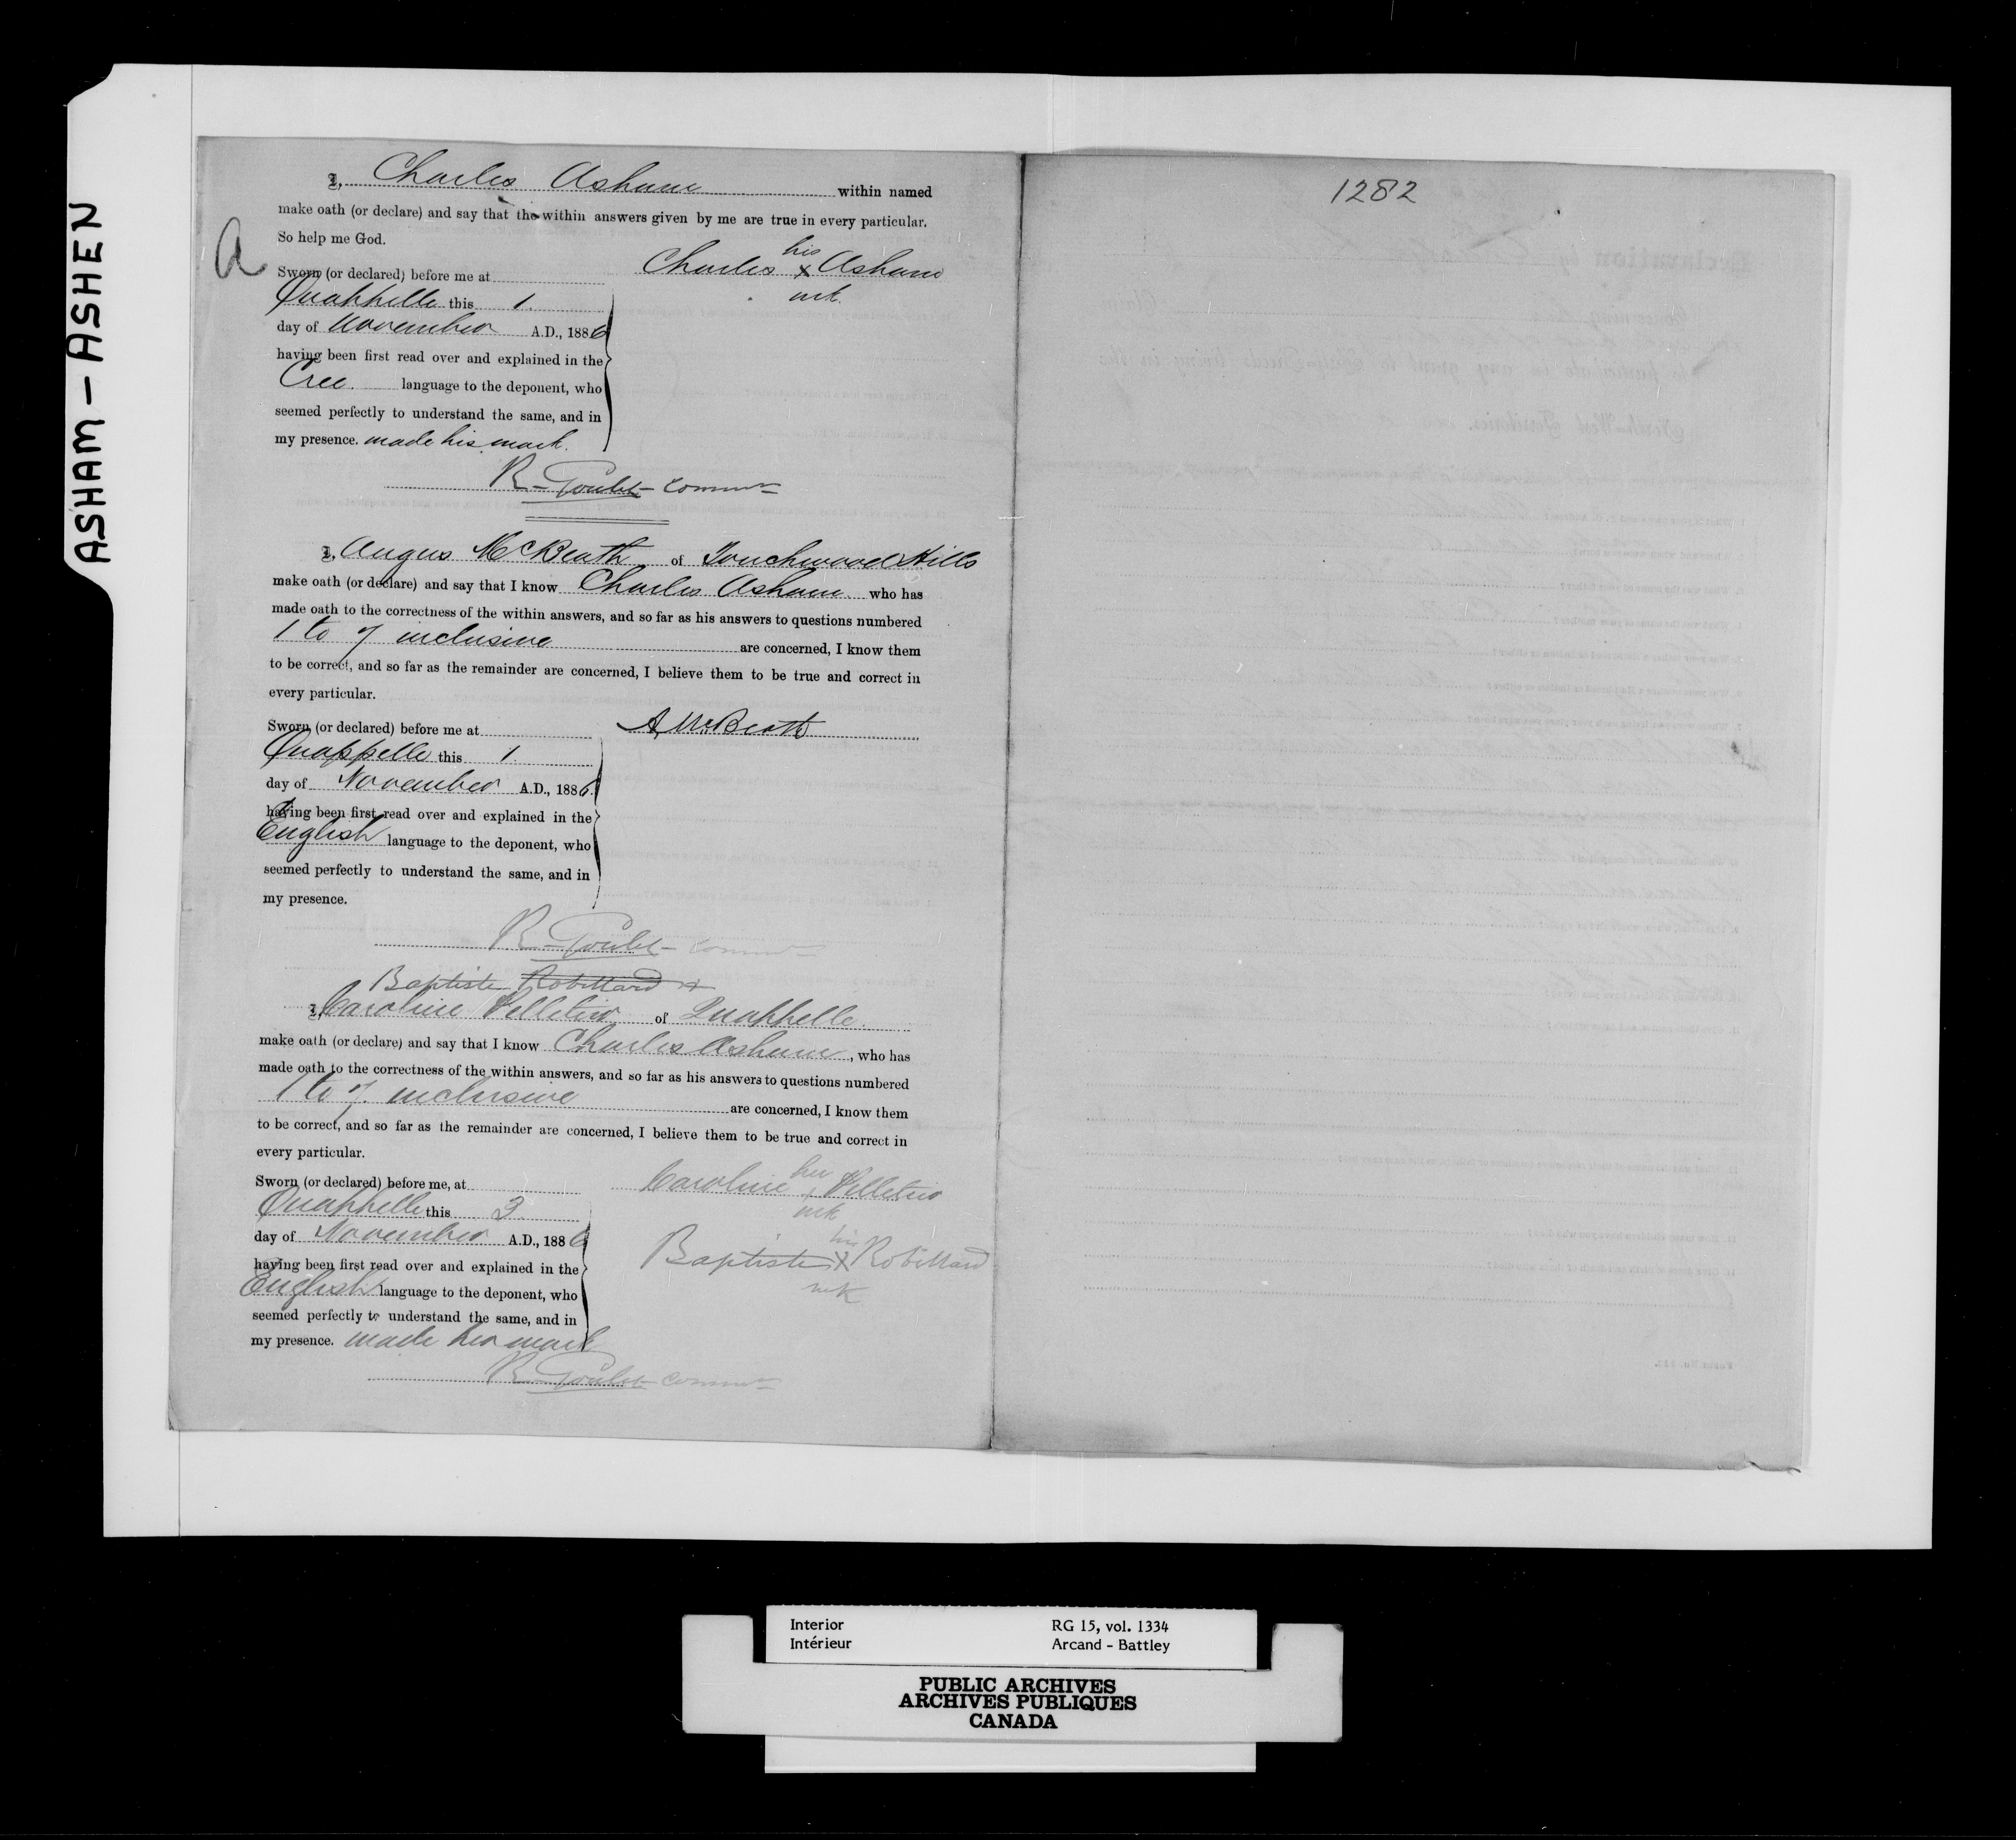 ASHAM – ASHEN
I, Charles Asham within named
make oath (or declare) and say that the within answers given by me are true in every particular.
So help me God.
A
Charles his x Asham
mk.
Sworn (or declared) before me at
Quappelle this 1.
day of November A.D., 1886
having been first read over and explained in the
Cree. language to the deponent, who
seemed perfectly to understand the same, and in
my presence. made his mark.
R. Goulet Commr
I, Angus McBeath of Touchwood Hills
make oath (or declare) and say that I know Charles Asham who has
made oath to the correctness of the within answers, and so far as his answers to questions numbered
1 to 7 inclusive are concerned, I know them
to be correct, and so far as the remainder are concerned, I believe them to be true and correct in
every particular.
Sworn (or declared) before me at
A. McBeath
Quappelle this 1.
day of November A.D., 1886.
having been first read over and explained in the
English language to the deponent, who
seemed perfectly to understand the same, and in
my presence.
R. Goulet Commr
Baptiste Robillard x
I, Caroline Pelletier of Quappelle.
make oath (or declare) and say that I know Charles Asham, who has
made oath to the correctness of the within answers, and so far as his answers to questions numbered
1 to 7. inclusive are concerned, I know them
to be correct, and so far as the remainder are concerned, I believe them to be true and correct in
every particular.
Sworn (or declared) before me, at
Caroline her x Pelletier
mk
Quappelle this 3
day of November A.D., 1886
Baptiste his x Robillard
mk
having been first read over and explained in the
English language to the deponent, who
seemed perfectly to understand the same, and in
my presence. made her mark
R. Goulet Commr
1282
Interior RG 15, vol. 1334
Intérieur Arcand - Battley
PUBLIC ARCHIVES
ARCHIVES PUBLIQUES
CANADA